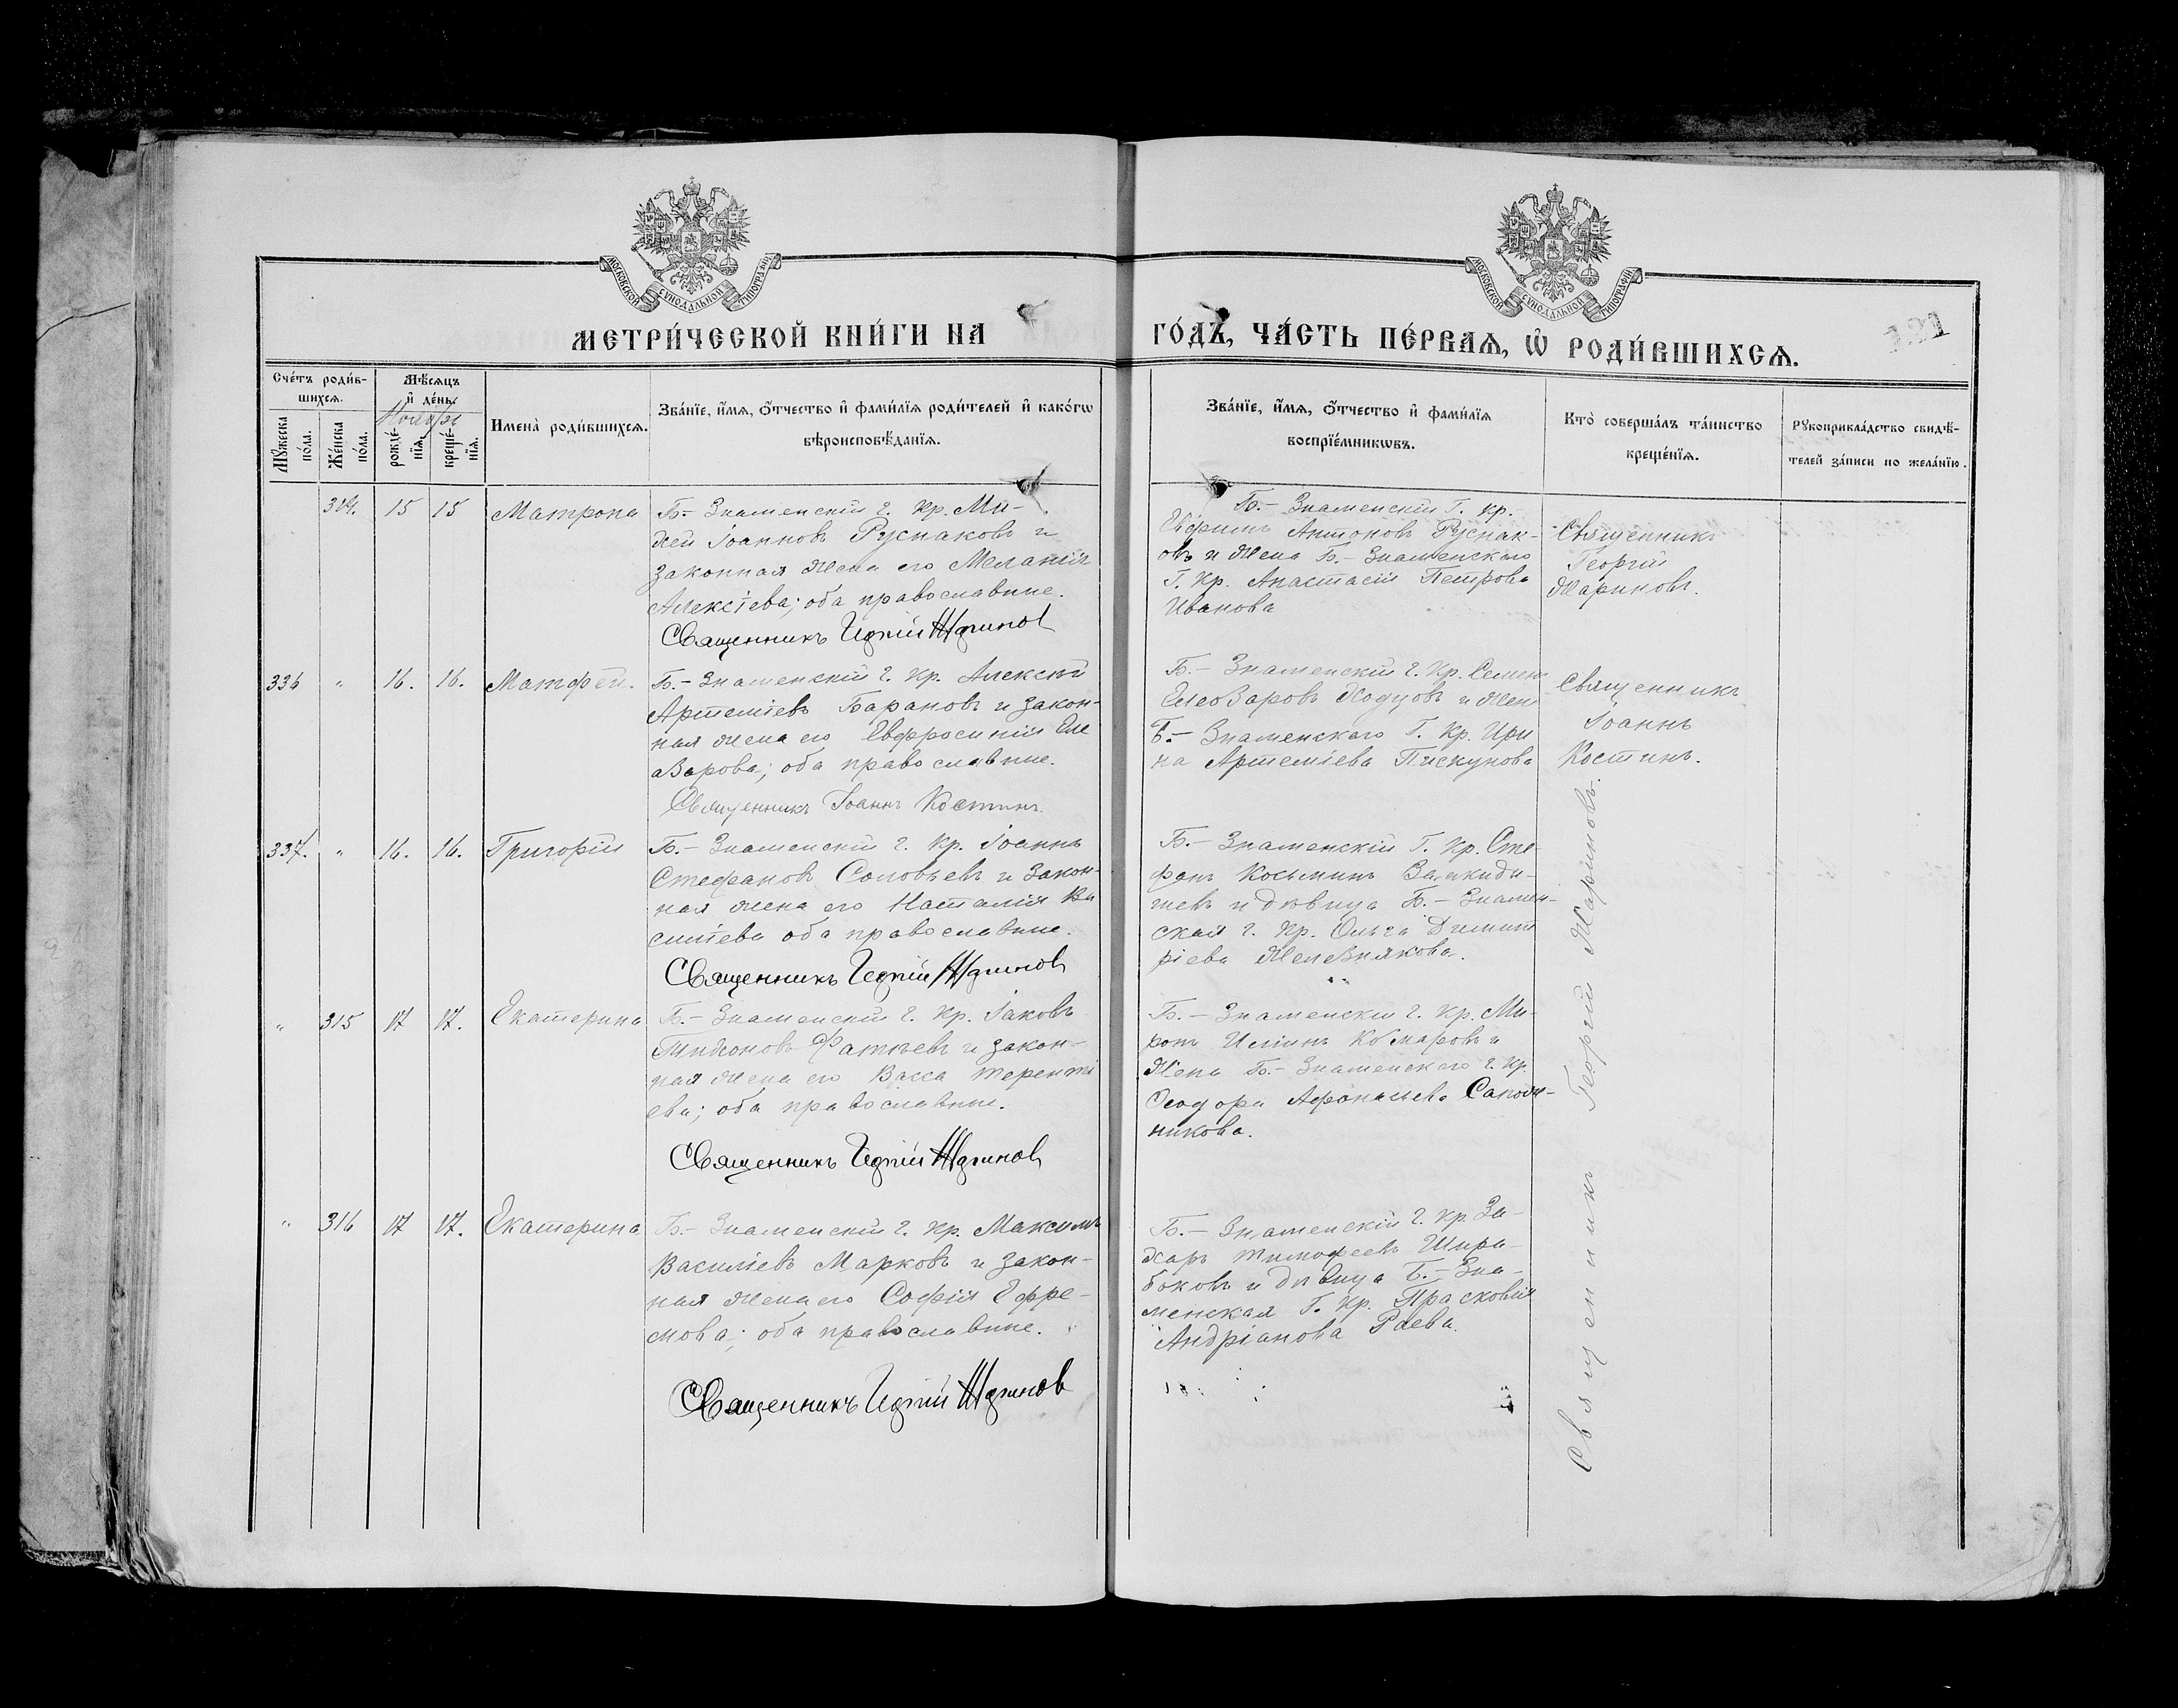 МОСКОВСКОЙ СУНОДАЛЬНОЙ ТИПОГРАФІИ
МОСКОВСКОЙ СУНОДАЛЬНОЙ ТИПОГРАФІИ
МЕТРИ́ЧЕСКОЙ КНИ́ГИ НА
ГО́ДЪ, ЧА́СТЬ ПЕ́РВАЯ, Ѡ РОДИ́ВШИХСЯ.
121
Сче́тъ роди́в-
шихся.
Мꙋжеска
по́ла.
Же́нска
по́ла.
Мѣ́сяцъ
и҆ де́нь.
Ноябрь
рожде́-
нїя.
креще́-
нїя.
Имена̀ роди́вшихся.
Зва́нїе, и҆́мя, ѻ҆́тчество и҆ фами́лїя роди́телей и҆ како́гѡ
вѣроисповѣ́данїя.
Зва́нїе, и҆́мя, ѻ҆́тчество и҆ фами́лїя
воспрїе́мникѡвъ.
Кто̀ соверша́лъ та́инство
креще́нїя.
Рꙋкоприкла́дство свидѣ́-
телей за́писи по жела́нїю.
314.
15
15
Матрона
Б.- Знаменскій г. кр. Ми-
хей Іоанновъ Руснаковъ и
законная жена его Меланія
Алексіева; оба православные.
Священникъ Георгій Жариновъ
Б.- Знаменскій Г. кр.
Евфимъ Антоновъ Руснак-
овъ и жена Б.- Знаменскаго
Г. кр. Анастасія Петрова
Иванова
Священникъ
Георгій
Жариновъ.
336
"
16.
16.
Матфей.
Б.- Знаменскій г. кр. Алексѣй
Артеміевъ Барановъ и закон-
ная жена его Евфросинія Еле
азарова; оба православные.
Священникъ Іоаннъ Костинъ.
Б.- Знаменскій г. кр. Семенъ
Елеозаровъ Ходцовъ и жен
Б.- Знаменскаго Г. кр. Ири
на Артеміева Пискунова
Священникъ
Іоаннъ
Костинъ.
337.
"
16.
16.
Григорій
Б.- Знаменскій г. кр. Іоаннъ
Стефановъ Соловьевъ и закон-
ная жена его Наталія Ва
силіева оба православные.
Священникъ Георгій Жариновъ
Б.- Знаменскій Г. кр. Сте-
фанъ Косьминъ
и дѣвица Б.- Знамен-
ская г. кр. Ольга Димит
ріева Желѣзнякова.
"
315
17
17.
Екатерина
Б.- Знаменскій г. кр. Іаковъ
Тихоновъ Фатѣевъ и закон-
ная жена его Васса Теренті
ева; оба православные.
Священникъ Георгій Жариновъ
Б.- Знаменскій г. кр. Ми-
ронъ Ильинъ Комаровъ и
жена Б.- Знаменскаго г. кр.
Ѳеодора Афанасьева Сапож-
никова.
"
316
17
17.
Екатерина
Б.- Знаменскій г. кр. Максимъ
Василіевъ Марковъ и закон-
ная жена его Софія Ефре-
мова; оба православные.
Священникъ Георгій Жариновъ
Б.- Знаменскій г. кр. За-
харъ Тимофеевъ Шира-
боковъ и дѣвица Б.- Зна-
менская Г. кр. Прасковія
Андріанова Раева.
Священникъ Георгій Жариновъ.